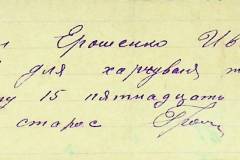 Ерошенко Ив
для харчуваня т
у 15 пятнадцать
старос